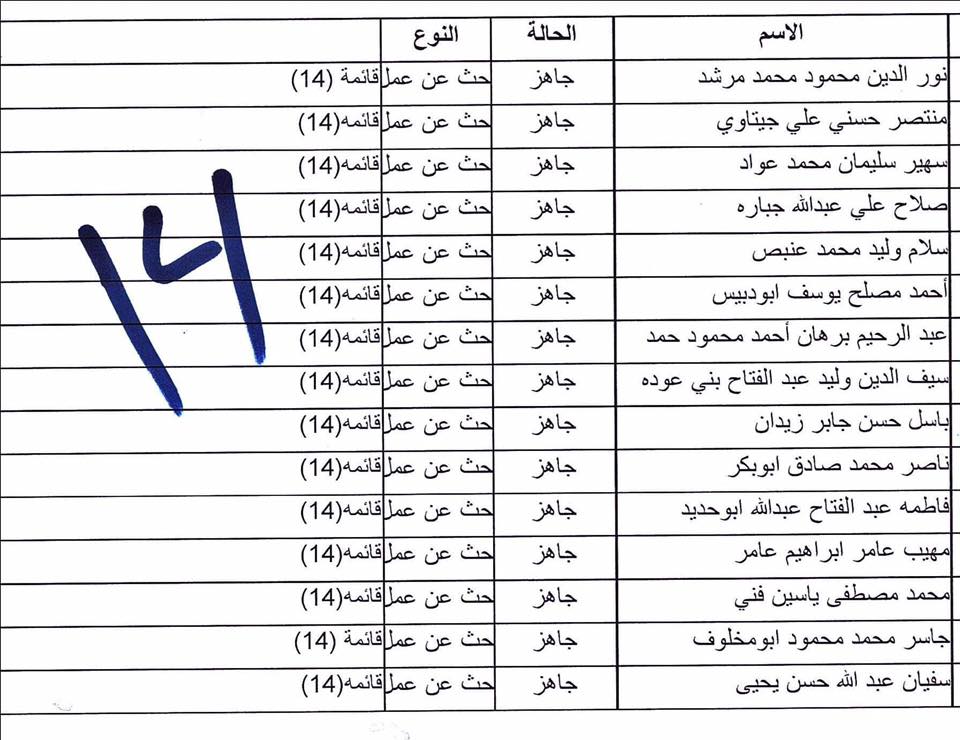 الاسم الحالة النوع
نور الدين محمود محمد مرشد جاهز حث عن عمل قائمة (14)
منتصر حسني علي جيتاوي جاهز حث عن عمل قائمه(14)
سهير سليمان محمد عواد جاهز حث عن عمل قائمه(14)
صلاح علي عبدالله جباره جاهز حث عن عمل قائمه(14)
سلام وليد محمد عنبص جاهز حث عن عمل قائمه(14)
أحمد مصلح يوسف ابودبيس جاهز حث عن عمل قائمه(14)
عبد الرحيم برهان أحمد محمود حمد جاهز حث عن عمل قائمه(14)
سيف الدين وليد عبد الفتاح بني عوده جاهز حث عن عمل قائمه(14)
باسل حسن جابر زيدان جاهز حث عن عمل قائمه(14)
ناصر محمد صادق ابوبكر جاهز حث عن عمل قائمه(14)
فاطمه عبد الفتاح عبدالله ابوحديد جاهز حث عن عمل قائمه(14)
مهيب عامر ابراهيم عامر جاهز حث عن عمل قائمه(14)
محمد مصطفى ياسين فني جاهز حث عن عمل قائمه(14)
جاسر محمد محمود ابومخلوف جاهز حث عن عمل قائمة (14)
سفيان عبد الله حسن يحيى جاهز حث عن عمل قائمه(14)
١٤